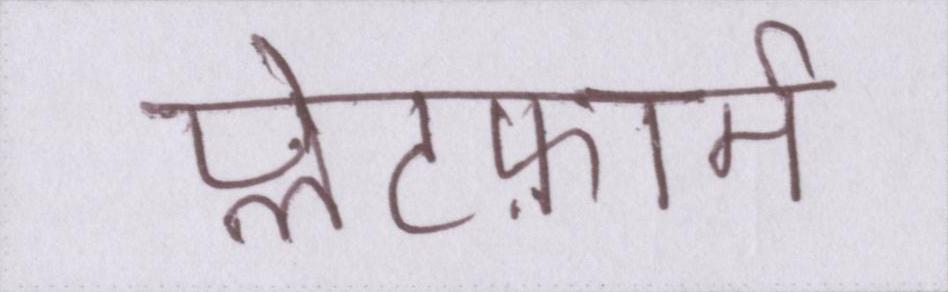 प्लेटफ़ार्म